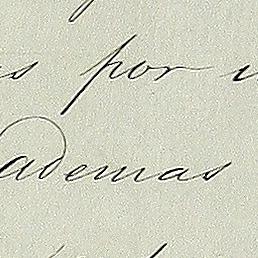 por
ademas